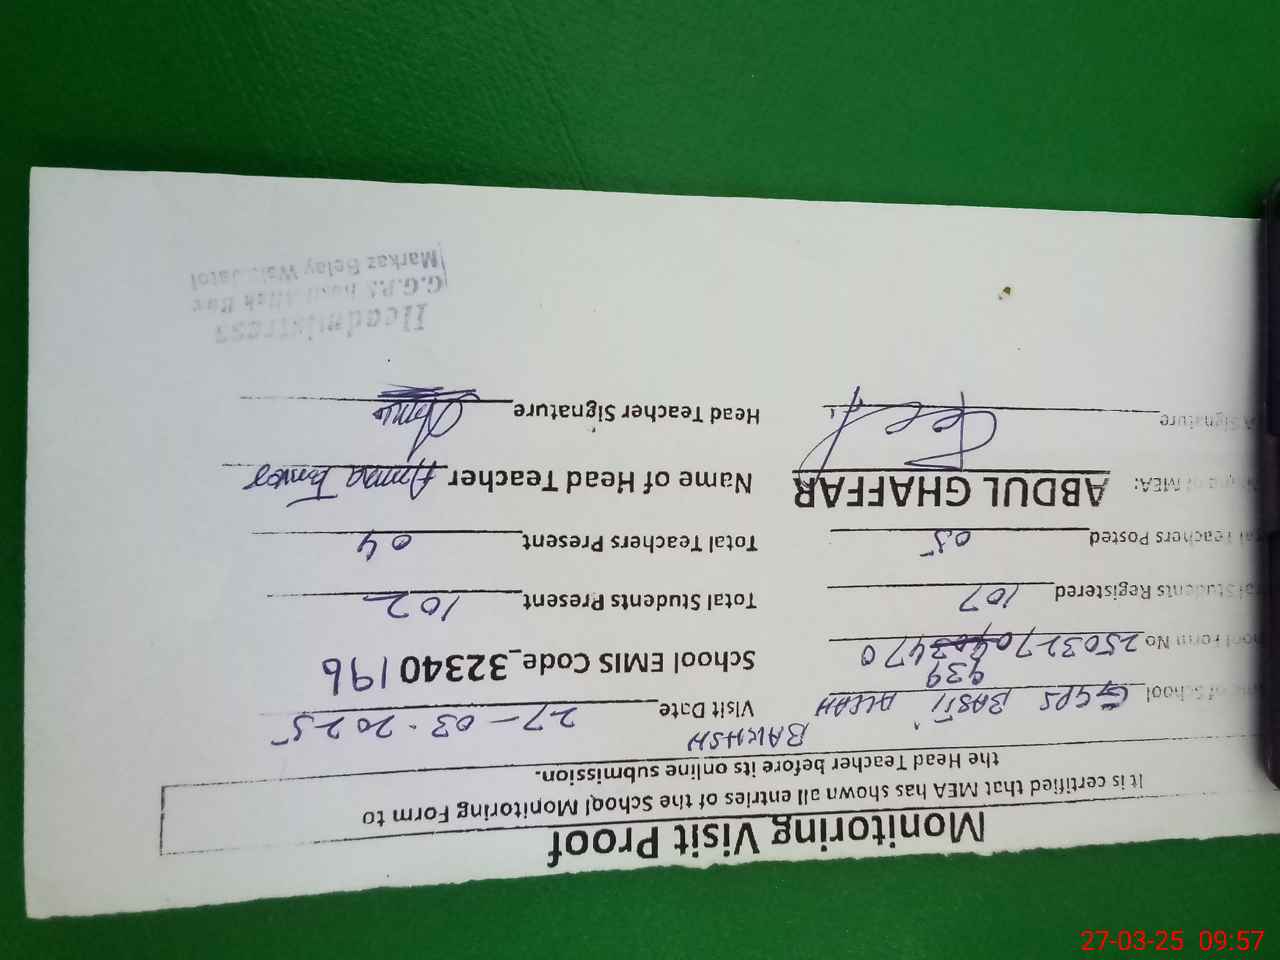 Monitoring Visit Proof
It is certified that MEA has shown all entries of the School Monitoring Form to
the Head Teacher before its online submission.
BAKHSH
of School GGPS BASTI ALLAH
Visit Date 27-03-2025
939
Form No 2503270 3470
School EMIS Code_32340196
Students Registered 107
Total Students Present 102
Teachers Posted 05
Total Teachers Present 04
of MEA: ABDUL GHAFFAR
Name of Head Teacher Amna
Signature
Head Teacher Signature
Headmistress
G.G.P.S
Markaz Belay Wala
27-03-25 09:57